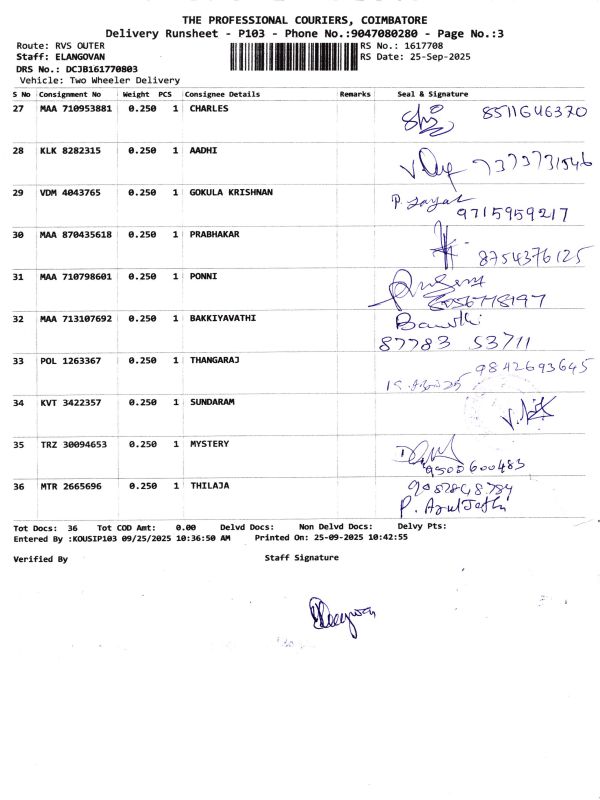 THE PROFESSIONAL COURIERS, COIMBATORE
Delivery Runsheet - P103 - Phone No.:9047080280 - Page No.:3
Route: RVS OUTER RS No.: 1617708
Staff: ELANGOVAN RS Date: 25-Sep-2025
DRS No.: DCJB161770803
Vehicle: Two Wheeler Delivery
S No Consignment No Weight PCS Consignee Details Remarks Seal & Signature
27 MAA 710953881 0.250 1 CHARLES 8511646370
28 KLK 8282315 0.250 1 AADHI 7373731546
29 VDM 4043765 0.250 1 GOKULA KRISHNAN P.
9715959217
30 MAA 870435618 0.250 1 PRABHAKAR
8754376125
31 MAA 710798601 0.250 1 PONNI
32 MAA 713107692 0.250 1 BAKKIYAVATHI
87783 53711
33 POL 1263367 0.250 1 THANGARAJ 9842693645
34 KVT 3422357 0.250 1 SUNDARAM
35 TRZ 30094653 0.250 1 MYSTERY
9500600483
36 MTR 2665696 0.250 1 THILAJA
P.
Tot Docs: 36 Tot COD Amt: 0.00 Delvd Docs: Non Delvd Docs: Delvy Pts:
Entered By :KOUSIP103 09/25/2025 10:36:50 AM Printed On: 25-09-2025 10:42:55
Verified By Staff Signature